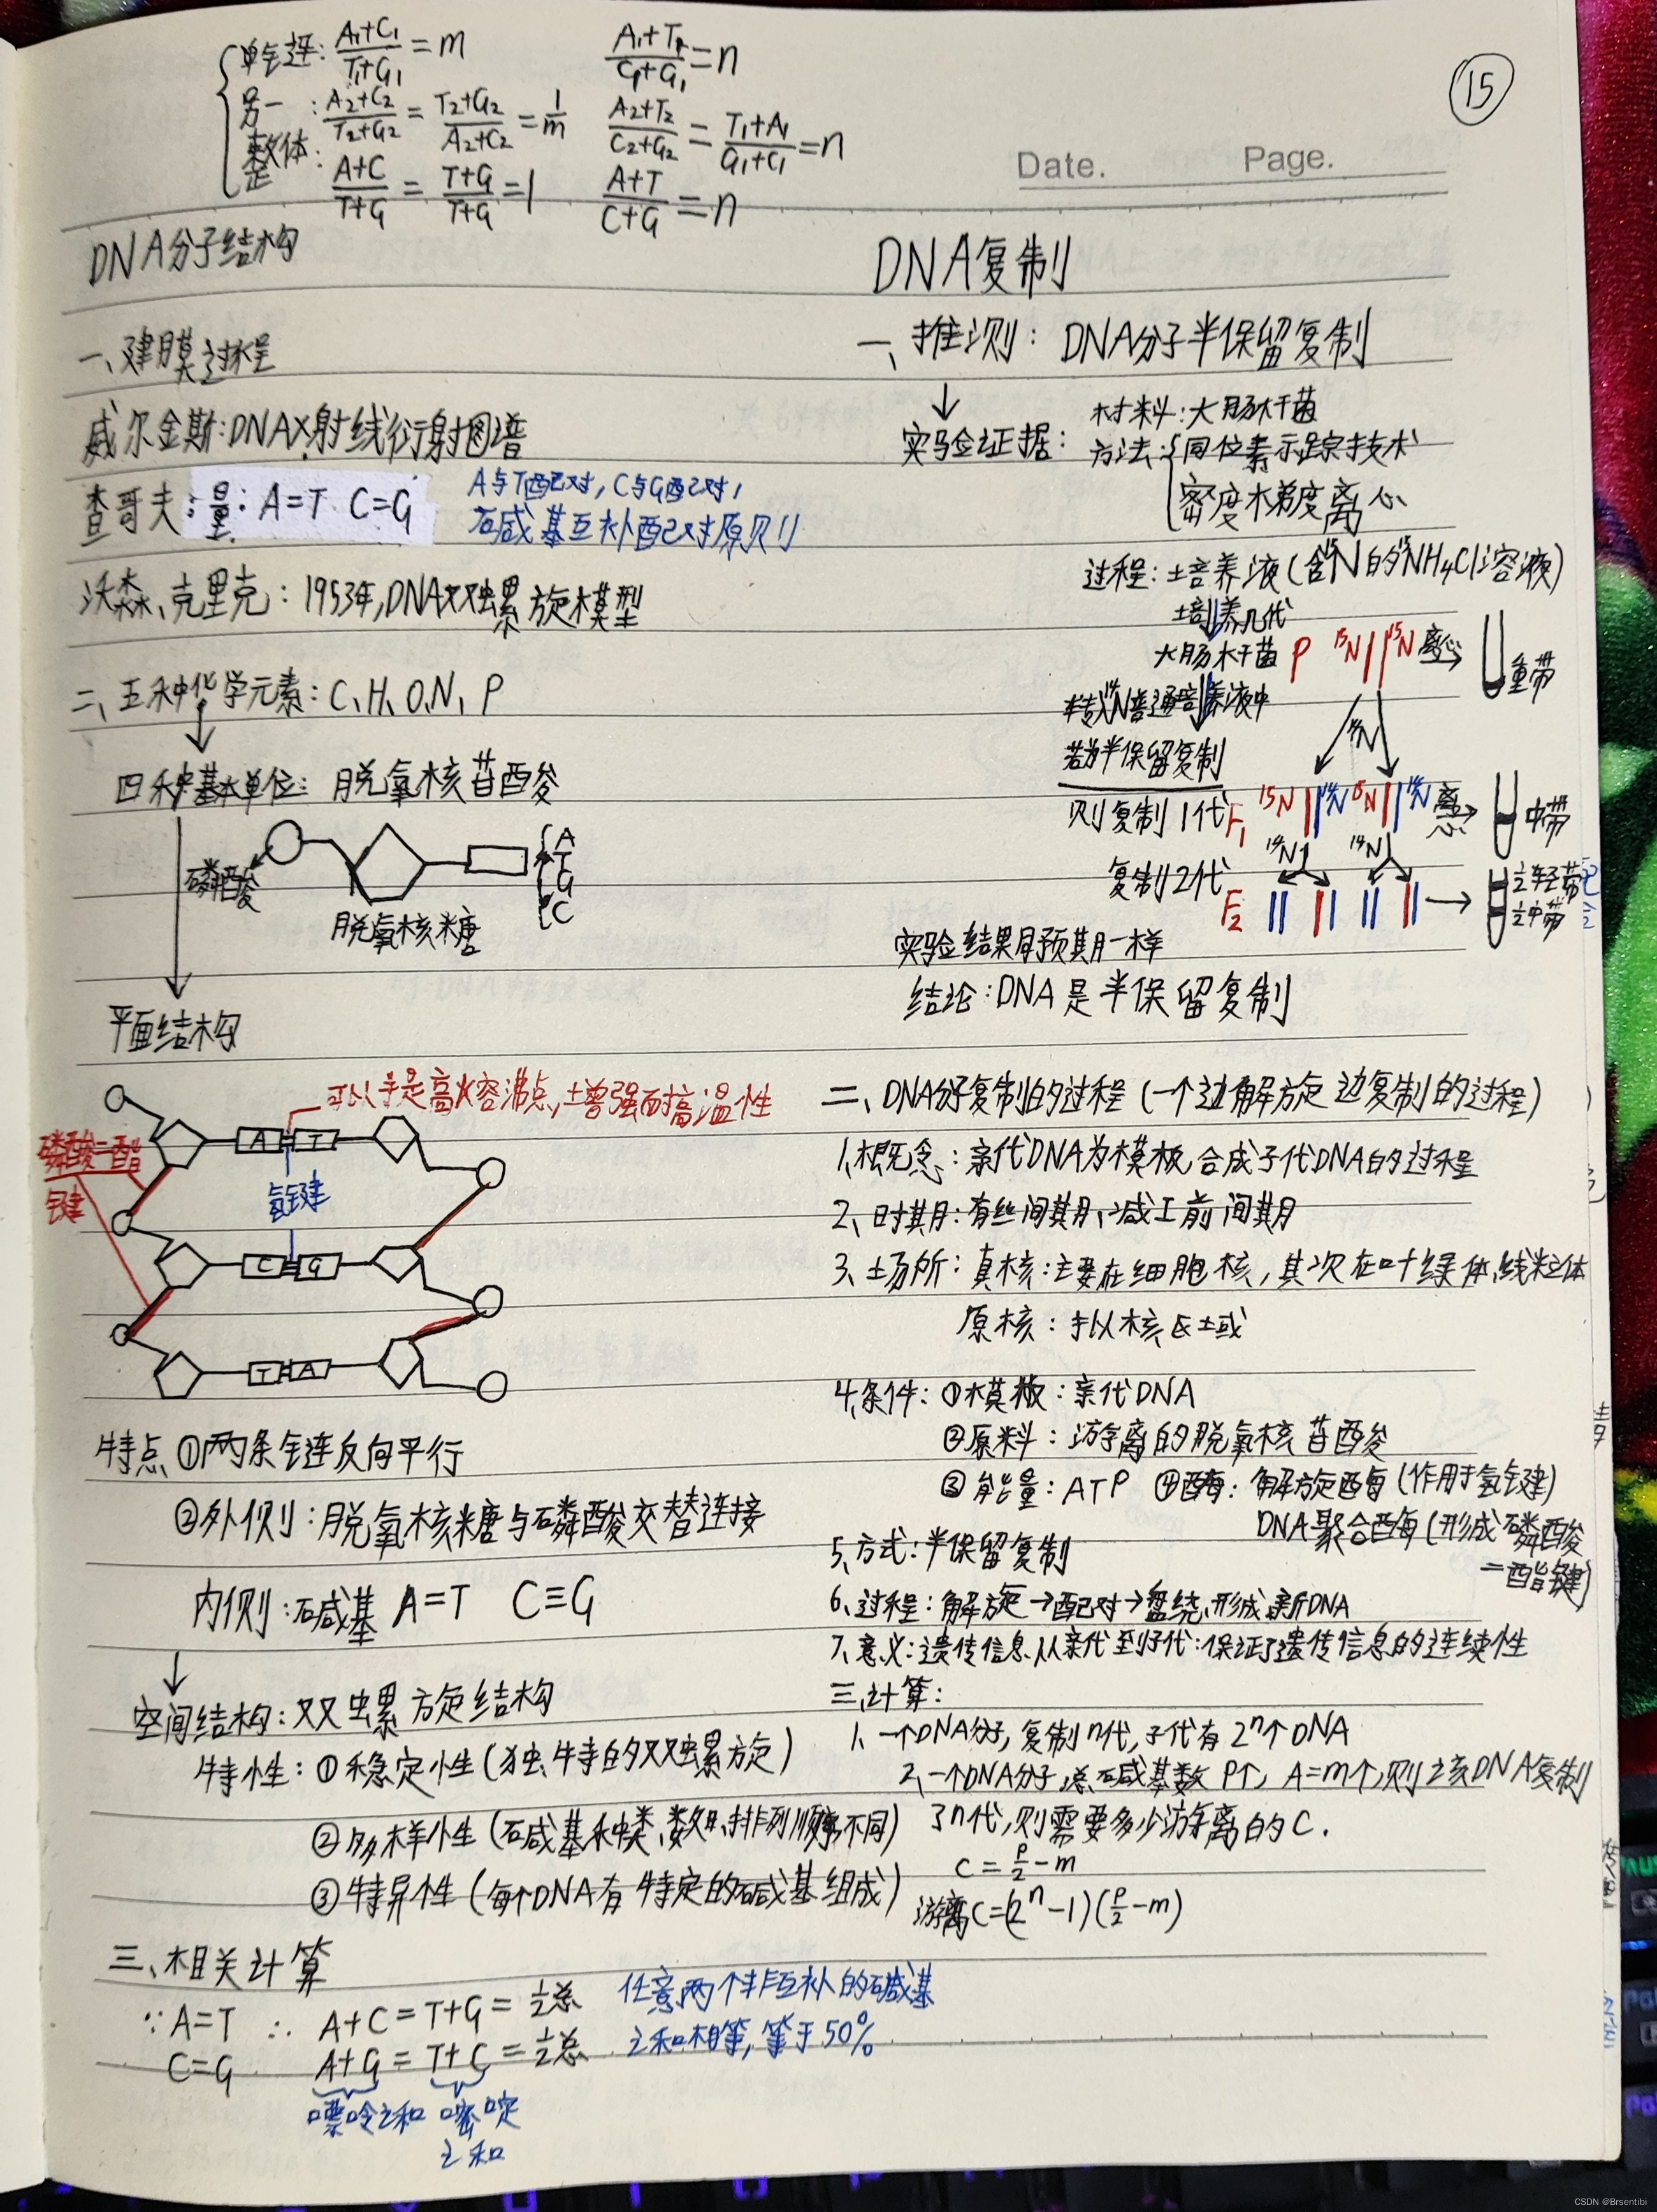 单链: A₁+C₁/T₁+G₁ = m    A₁+T₁/C₁+G₁ = n
另一: A₂+C₂/T₂+G₂ = T₂+G₂/A₂+C₂ = 1/m    A₂+T₂/C₂+G₂ = T₁+A₁/G₁+C₁ = n
整体: A+C/T+G = T+G/T+G = 1    A+T/C+G = n
⑮
Date. Page.
DNA分子结构
一、建膜过程
威尔金斯:DNAX射线衍射图谱
查哥夫:量: A=T C=G
A与T配对, C与G配对,
碱基互补配对原则
沃森、克里克: 1953年,DNA双螺旋模型
二、五种化学元素: C、H、O、N、P
四种基本单位: 脱氧核苷酸
磷酸
脱氧核糖
A
T
G
C
平面结构
可以于是高火容沸点,增强耐高温性
磷酸二酯
键
A T
氢键
C G
T A
特点 ①两条链反向平行
②外侧:脱氧核糖与磷酸交替连接
内侧:碱基 A=T C≡G
空间结构:双螺旋结构
特性: ①稳定性(独特的双螺旋)
②多样性(碱基种类、数目、排列顺序不同)
③特异性(每个DNA有特定的碱基组成)
三、相关计算
∵A=T ∴ A+C=T+G=½总
C=G A+G=T+C=½总
任意两个非互补的碱基
之和相等,等于50%
嘌呤之和 嘧啶
之和
DNA复制
一、推测: DNA分子半保留复制
实验证据:
材料:大肠杆菌
方法:同位素示踪技术
密度梯度离心
过程:培养液(含¹⁵N的¹⁵NH₄Cl溶液)
培养几代
大肠杆菌 P ¹⁵N ¹⁵N 离心 重带
转入¹⁴N普通培养液中
¹⁴N
若为半保留复制
则复制1代 F₁ ¹⁵N ¹⁴N ¹⁵N ¹⁴N 离心 中带
¹⁴N ¹⁴N
复制2代
F₂ ½轻带
½中带
实验结果同预期一样
结论:DNA是半保留复制
二、DNA分子复制的过程(一个边解旋边复制的过程)
1、概念:亲代DNA为模板,合成子代DNA的过程
2、时期:有丝间期、减Ⅰ前间期
3、场所:真核:主要在细胞核,其次在叶绿体、线粒体
原核:拟核区域
4、条件:①模板:亲代DNA
②原料:游离的脱氧核苷酸
③能量:ATP ④酶:解旋酶(作用于氢键)
DNA聚合酶(形成磷酸
二酯键)
5、方式:半保留复制
6、过程:解旋→配对→盘绕,形成新DNA
7、意义:遗传信息从亲代到子代:保证了遗传信息的连续性
三、计算:
1、一个DNA分子,复制n代,子代有2ⁿ个DNA
2、一个DNA分子,总碱基数P个, A=m个,则该DNA复制
了n代,则需要多少游离的C.
C=P/2-m
游离C=(2ⁿ-1)(P/2-m)
CSDN @Brsentibi